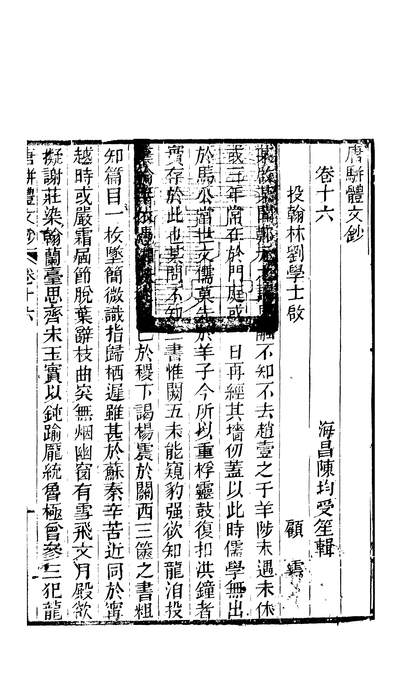 唐駢體文鈔
卷十六 海昌陳均受笙輯
投翰林劉學士啟 顧雲
某啟某聞融不知不去趙壹之于羊陟未遇未休
或三年常在於門庭或日再經其墻仞蓋以此時儒學無出
於馬公當世文儒莫先於羊子今所以重桴靈鼓復扣洪鐘者
實存於此也某問不知二書惟闕五未能窺豹强欲知龍洎投
於稷下謁楊震於關西三篋之書粗
知篇目一枚墼簡微識指歸栖遲雖甚於蘇秦辛苦近同於甯
越時或嚴霜屆節脫葉辭枝曲突無烟幽窗有雪飛文月殿欲
擬謝莊染翰蘭臺思齊宋玉實以鈍踰龐統魯極曾參三犯龍
唐駢體文鈔 卷十六